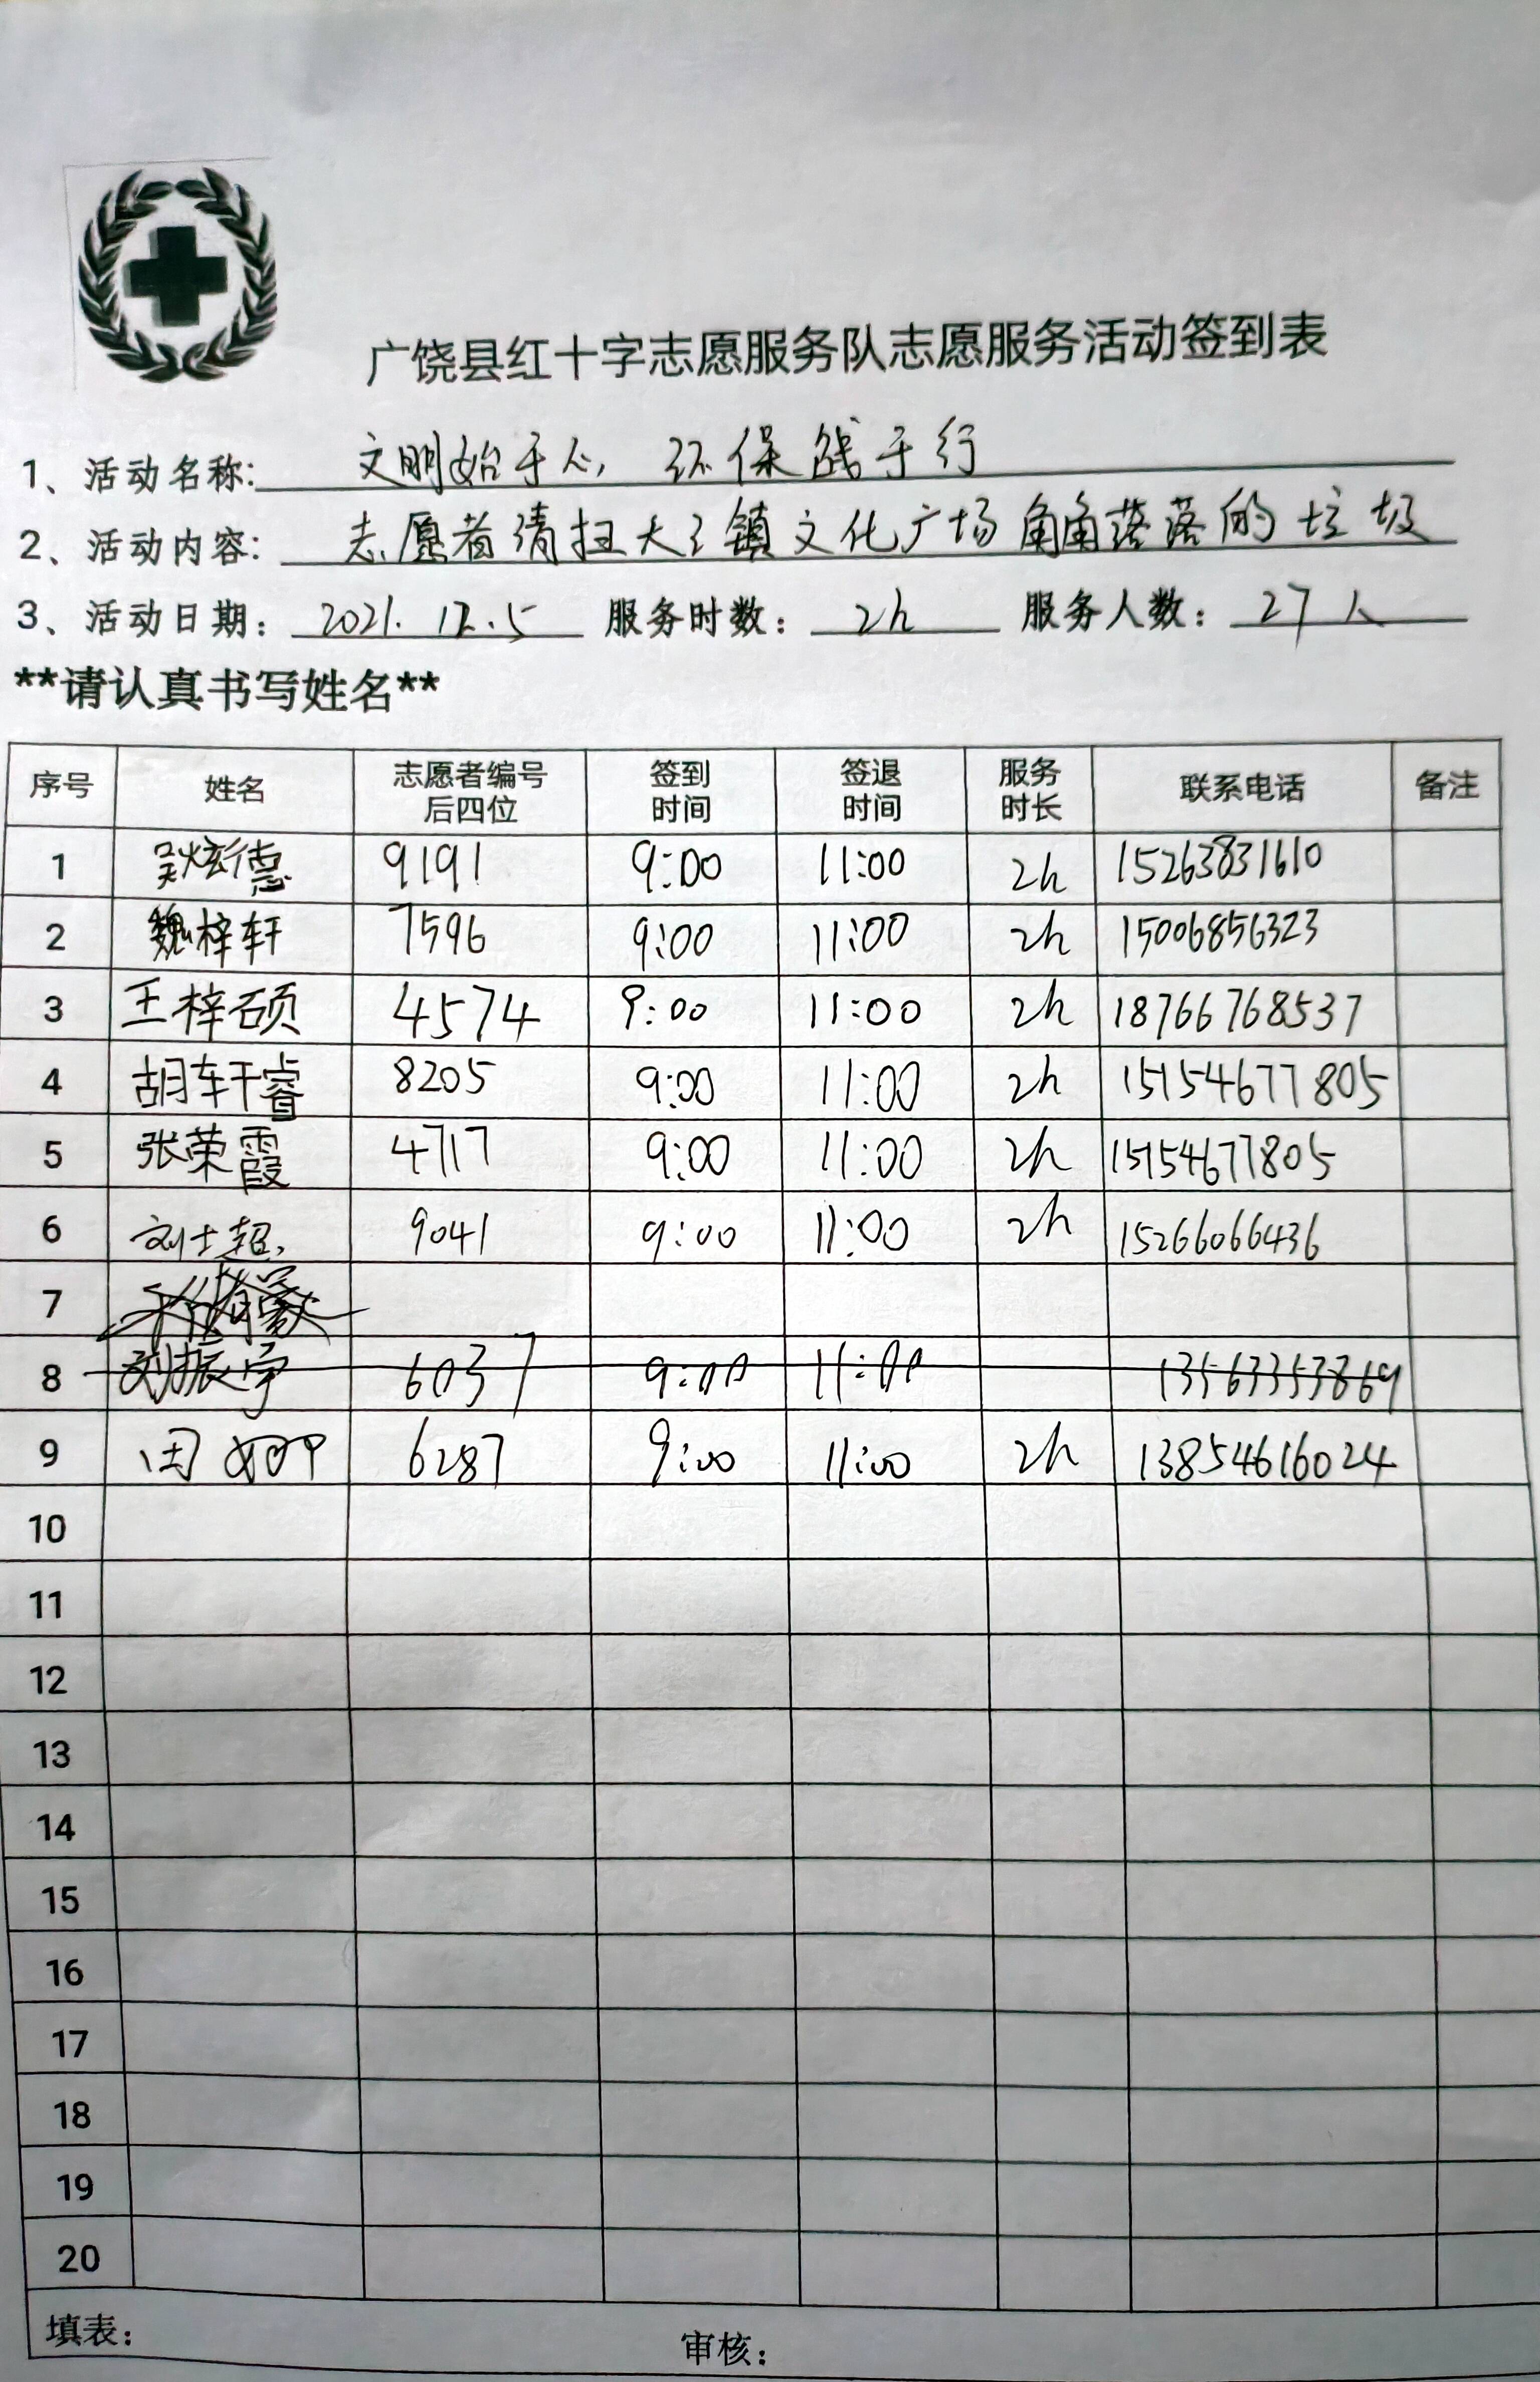 广饶县红十字志愿服务队志愿服务活动签到表
1、活动名称: 文明始于心, 环保践于行
2、活动内容: 志愿者清扫大王镇文化广场角角落落的垃圾
3、活动日期: 2021.12.5 服务时数: 2h 服务人数: 27人
**请认真书写姓名**
序号 姓名 志愿者编号后四位 签到时间 签退时间 服务时长 联系电话 备注
1 吴炫德 9191 9:00 11:00 2h 15263831610
2 魏梓轩 7596 9:00 11:00 2h 15006856323
3 王梓硕 4574 9:00 11:00 2h 18766768537
4 胡轩睿 8205 9:00 11:00 2h 15154677805
5 张荣霞 4717 9:00 11:00 2h 15154677805
6 刘士超 9041 9:00 11:00 2h 15266066436
7
8 刘振宇 6037 9:00 11:00 13563353869
9 田 6287 9:00 11:00 2h 13854616024
10
11
12
13
14
15
16
17
18
19
20
填表: 审核: